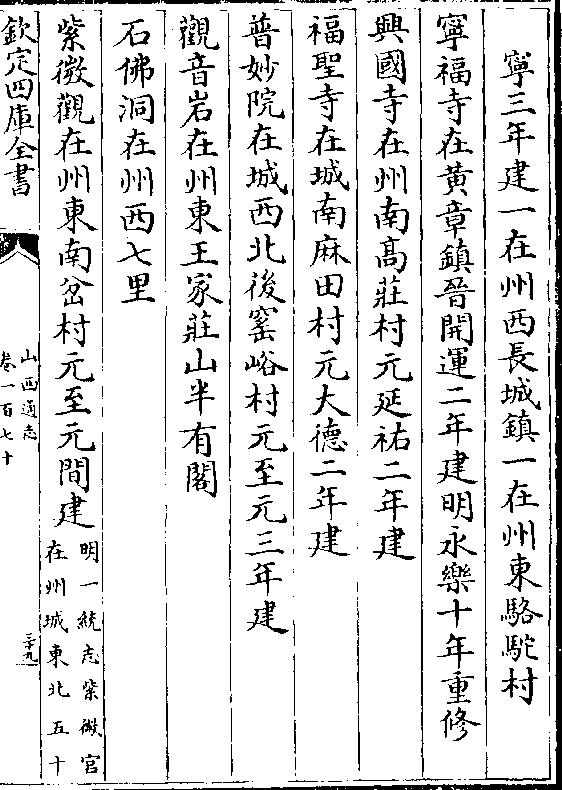 寧三年建一在州西長城鎮一在州東駱駝村
寧福寺在黃章鎮晉開運二年建明永樂十年重修
興國寺在州南髙莊村元延祐二年建
福聖寺在城南麻田村元大德二年建
普妙院在城西北後窰峪村元至元三年建
觀音岩在州東王家莊山半有閣
石佛洞在州西七里
紫微觀在州東南岔村元至元間建
明一統志紫微宮
在州城東北五十
欽定四庫全書
山西通志
卷一百七十
三十九